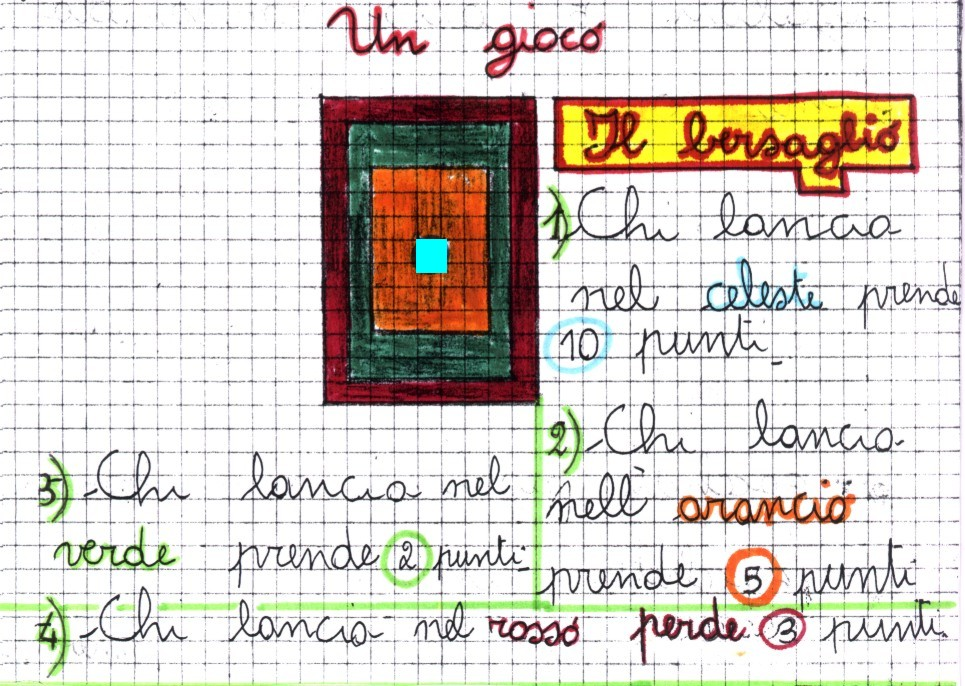 Un gioco
Il bersaglio
1) Chi lancia
nel celeste prende
10 punti
2) Chi lancia
nell' arancio
prende 5 punti
3) Chi lancia nel
verde prende 2 punti
4) Chi lancia nel rosso perde 3 punti.